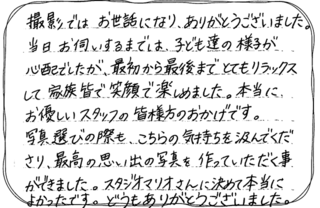 撮影では お世話になり、ありがとうございました。
当日 お伺いするまでは、子ども達の様子が
心配でしたが、最初から最後まで とてもリラックス
して 家族皆で 笑顔で楽しめました。本当に、
お優しい スタッフの 皆様方のおかげです。
写真選びの際も、こちらの 気持ちを汲んでくだ
さり、最高の思い出の写真を 作っていただく事
ができました。スタジオマリオさんに決めて本当に
よかったです。どうもありがとうございました。